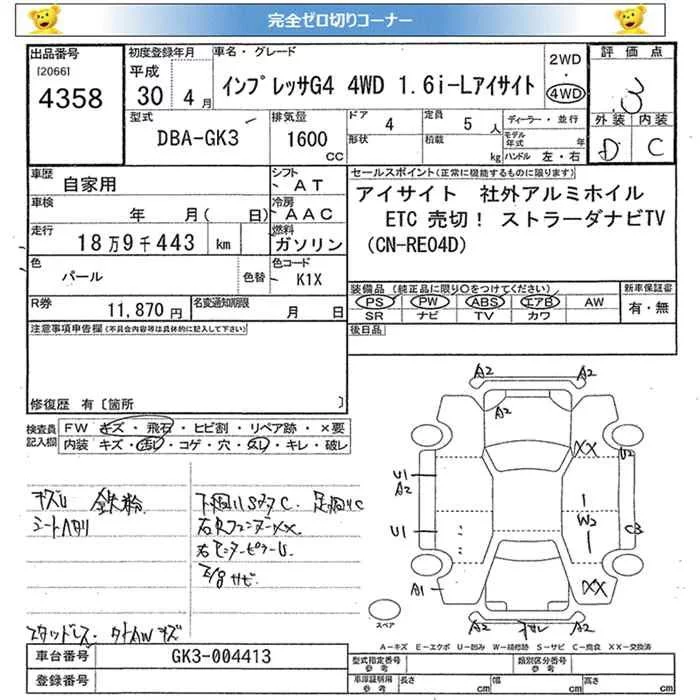 完全ゼロ切りコーナー
出品番号
[2066]
4358
初度登録年月
平成
30 4月
車名・グレード
インプレッサG4 4WD 1.6i-Lアイサイト
2WD
・
4WD
評価点
3
外装 内装
D C
型式
DBA-GK3
排気量
1600
CC
ドア
4
定員
5人
形状
積載
kg
ディーラー・並行
モデル年式 年
ハンドル 左・右
車歴
自家用
シフト
AT
車検
年 月( 日)
冷房
AAC
走行
18万9千443 km
燃料
ガソリン
色
パール
色替
色コード
K1X
R券
11,870円
名変通知期限
月 日
セールスポイント(正常に機能するものに限ります)
アイサイト 社外アルミホイル
ETC 売切! ストラーダナビTV
(CN-RE04D)
装備品(純正品に限り○をつけてください)
PS PW ABS エアB AW
SR ナビ TV カワ
新車保証書
有・無
後日品
注意事項申告欄(不具合内容等は具体的に記入して下さい)
修復歴 有〔箇所 〕
検査員記入欄
FW キズ・飛石・ヒビ割・リペア跡・×要
内装 キズ・汚レ・コゲ・穴・スレ・キレ・破レ
キズU 鉄粉
シートヘタリ
下廻りSサタC. 足廻りC
右Rフェンダー××
右センターピラーU
E/gサビ
スタッドレス・タイAWキズ
A2
A2
A2
××
U2
U1
A2
W2
U1
C3
A1
××
A2
A2
スペア
A-キズ E-エクボ U-凹み W-補修跡 S-サビ C-腐食 ××-交換済
車台番号
GK3-004413
登録番号
型式指定番号
参考
類別区分番号
参考
車庫証明用
参考
長さ cm
幅 cm
高さ cm